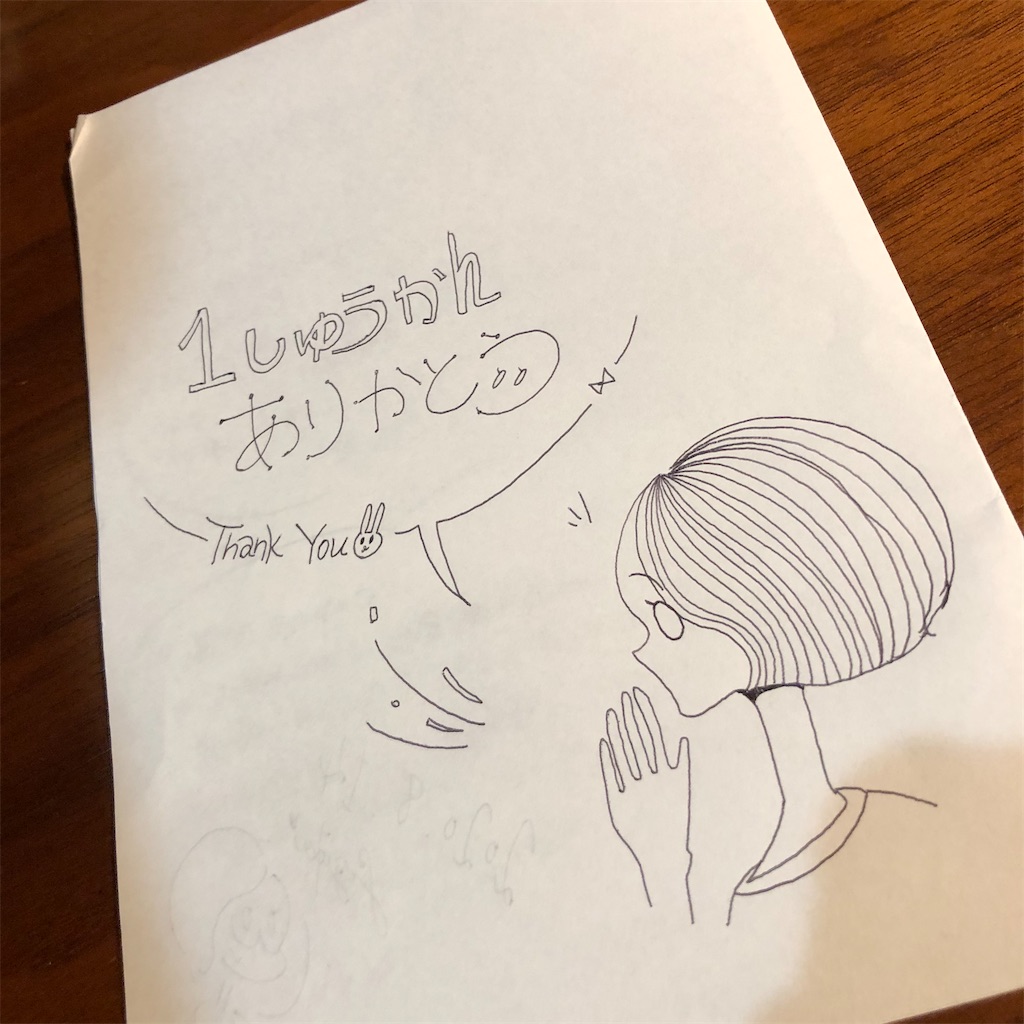 1しゅうかん
ありかとう
Thank You